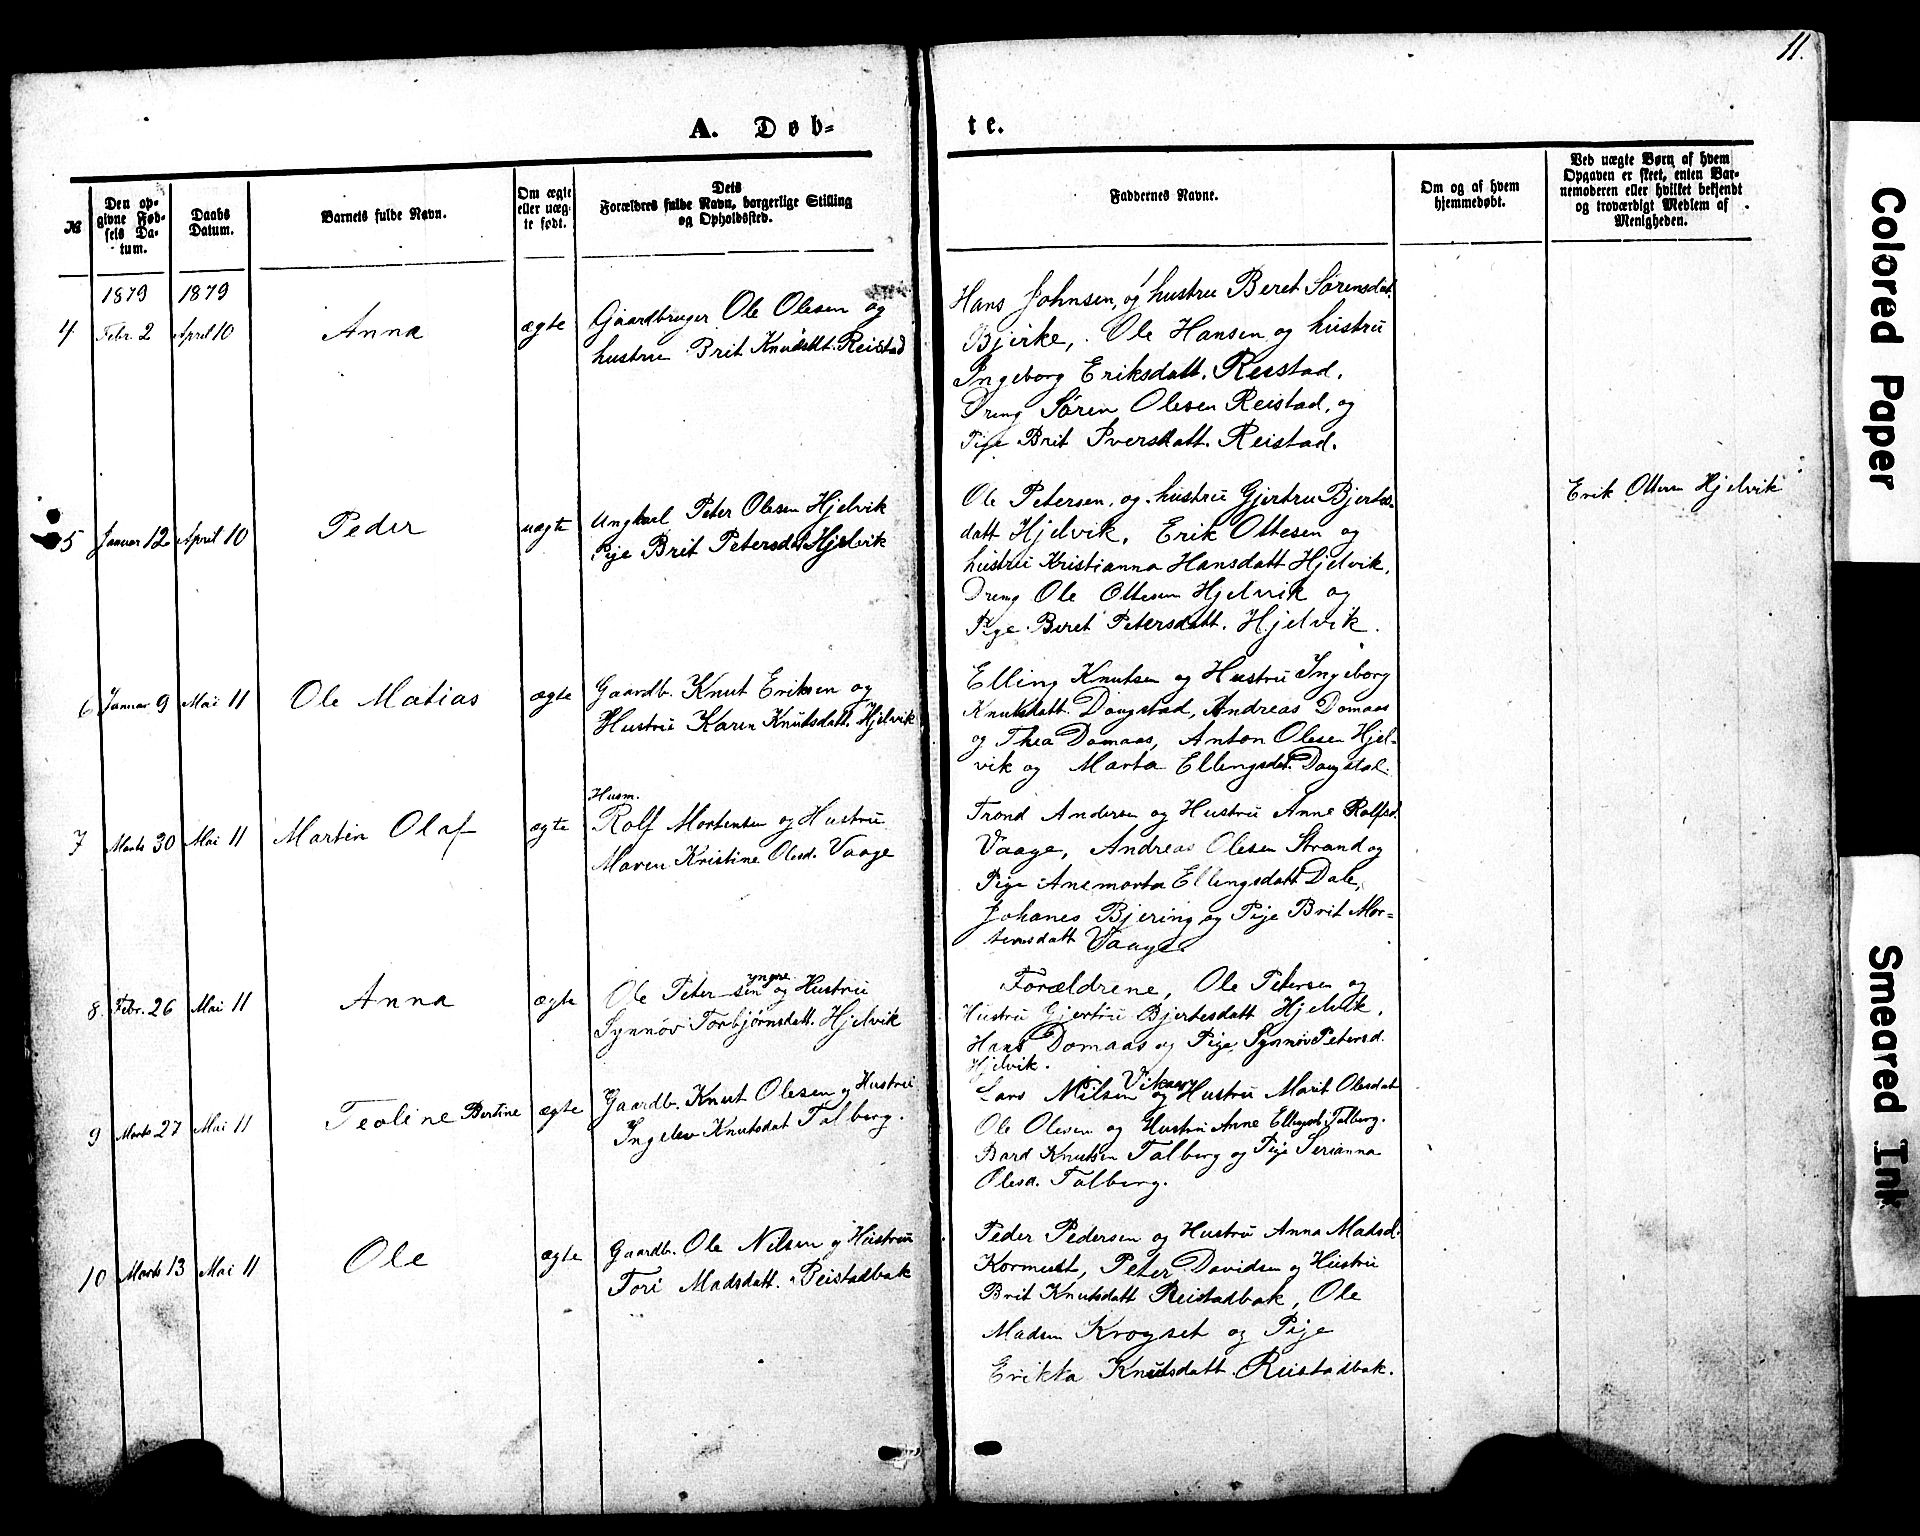 11.
A. Døb-
te.
№
Den op-
givne Fød-
sels Da-
tum.
Daabs
Datum.
Barnets fulde Navn.
Om ægte
eller uæg-
te født.
Dets
Forældres fulde Navn, borgerlige Stilling
og Opholdssted.
Faddernes Navne.
Om og af hvem
hjemmedøbt.
Ved uægte Børn af hvem
Opgaven er skeet, enten Bar-
nemoderen eller hvilket bekjendt
og troværdigt Medlem af
Menigheden.
1879 1879
4 Febr. 2 April 10 Anna ægte
Gaardbruger Ole Olesen og
hustru Brit Knudsdtt. Reistad
Hans Johnsen, og hustru Beret Sørensdat.
Bjerke, Ole Hansen og hustru
Ingeborg Eriksdatt. Reistad.
Dreng Søren Olesen Reistad, og
Pige Brit Iversdatt. Reistad.
5 Januar 12 April 10 Peder uægte
Ungkarl Peter Olesen Hjelvik
Pige Brit Petersdat Hjelvik
Ole Petersen, og hustru Gjertru Bjertes-
datt Hjelvik, Erik Ottesen og
hustru Kristianna Hansdatt Hjelvik,
Dreng Ole Ottesen Hjelvik og
Pige Beret Petersdatt. Hjelvik.
Erik Ottesen Hjelvik
6 Januar 9 Mai 11 Ole Matias ægte
Gaardb. Knut Eriksen og
Hustru Karen Knutsdatt. Hjelvik
Elling Knutsen og Hustru Ingeborg
Knutsdatt. Daugstad, Andreas Domaas
og Thea Domaas, Anton Olesen Hjel-
vik og Marta Ellingsdat. Daugstad.
7 Marts 30 Mai 11 Martin Olaf ægte
Husm.
Rolf Mortensen og Hustru
Maren Kristine Olesd. Vaage
Trond Andersen og Hustru Anne Rolfsd.
Vaage, Andreas Olesen Strand og
Pige Anemarta Ellingsdatt Dale,
Johanes Bjering og Pige Brit Mor-
tensdatt Vaage.
8. Febr. 26 Mai 11 Anna ægte
yngre
Ole Petersen og Hustru
Synnøv Torbjørnsdatt. Hjelvik
Forældrene, Ole Petersen og
Hustru Gjertru Bjertesdatt Hjelvik.
Hans Domaas og Pige Synnøv Petersd.
Hjelvik.
9 Marts 27 Mai 11 Teoline Bertine ægte
Gaardb. Knut Olesen og Hustru
Ingelev Knutsdat Talberg.
Lars Nilsen Viken og Hustru Marit Olesdat
Ole Olesen og Hustru Anne Ellingsd. Talberg.
Bard Knutsen Talberg og Pige Serianna
Olesd. Talberg.
10 Marts 13 Mai 11 Ole ægte
Gaardb. Ole Nilsen og Hustru
Tori Madsdatt. Reistadbak
Peder Pedersen og Hustru Anna Madsd.
Kormeset, Peter Davidsen og Hustru
Brit Knutsdatt Reistadbak, Ole
Madsen Krogset og Pige
Erikka Knutsdatt. Reistadbak.
Colored Paper
Smeared Ink